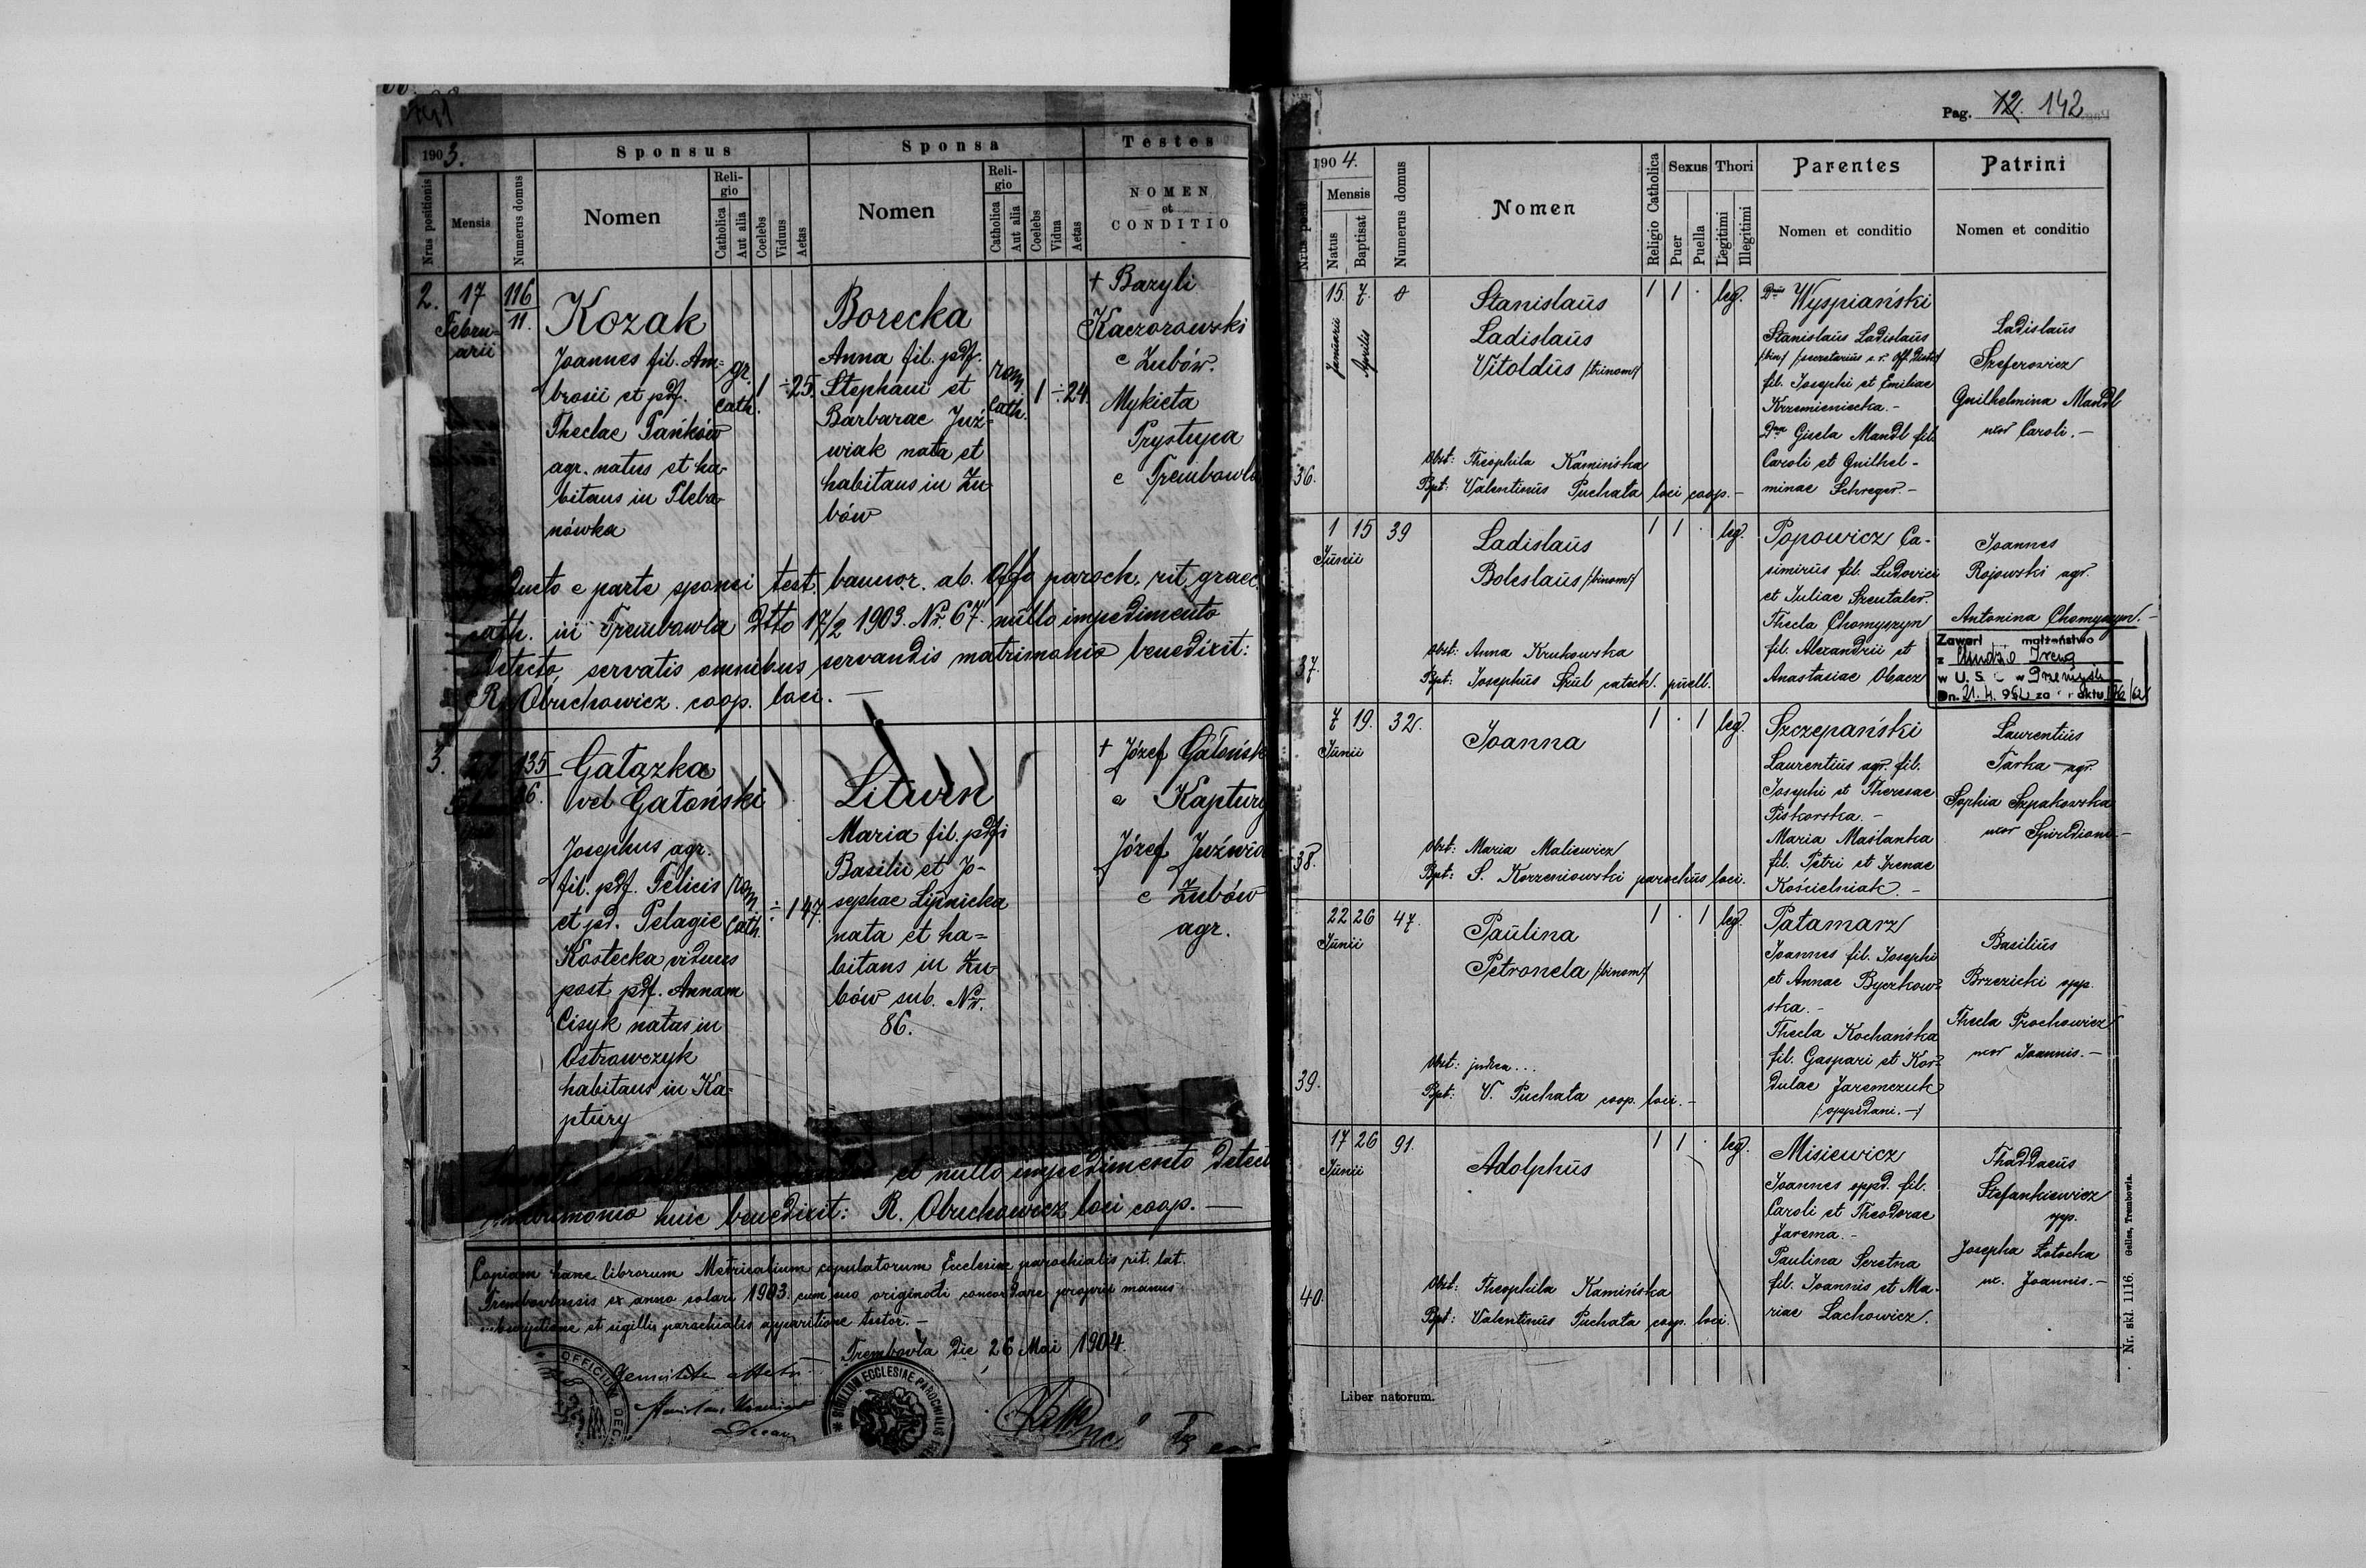 141
1903.
Sponsus
Sponsa
Testes
Nrus positionis
Mensis
Numerus domus
Nomen
Religio
Catholica
Aut alia
Coelebs
Viduus
Aetas
Nomen
Religio
Catholica
Aut alia
Coelebs
Vidua
Aetas
NOMEN
et
CONDITIO
2.
17
Febru-
arii
116
11.
Kozak
Joannes fil. Am-
brosii et pdf.
Theclae Pańków
agr. natus et ha-
bitans in Pleba-
nówka
gr.
cath.
1
÷
25.
Borecka
Anna fil. pdf.
Stephani et
Barbarae Juź-
wiak nata et
habitans in Zu-
bów
rom.
cath.
1
÷
24.
+ Bazyli
Kaczorowski
e Zubów.
Mykieta
Prystupa
e Trembowla
e parte sponsi test. bannor. ab. Offo paroch. rit. graec.
cath. in Trembowla Dtto 17/2 1903. Nr. 67. nullo impedimento
detecto, servatis omnibus servandis matrimonio benedixit:
R. Obuchowicz coop. loci. —
3.
22
135
86.
Gałązka
vel Gałoński
Josephus agr.
fil. pdf. Felicis
et pd. Pelagie
Kostecka viduus
post pdf. Annam
Cisyk natus in
Ostrowczyk
habitans in Ka-
ptury
rom.
cath.
÷
1
47.
Litwin
Maria fil. pdfi
Basilii et Jo-
sephae Lipnicka
nata et ha=
bitans in Zu-
bów sub. Nr.
86.
+ Józef Gałońsk
e Kaptury
Józef Juźwia
e Zubów
agr.
et nullo impedimento detect
matrimonio huic benedixit: R. Obuchowicz loci coop. —
Copiam hanc librorum Metricalium copulatorum Ecclesiae parochialis rit. lat.
Trembovlensis ex anno solari 1903. cum suo originali concordare propria manus
subscriptione et sigilli parochialis apparitione testor. —
Trembovla die 26 Mai 1904.
OFFICIUM DEC
SIGILLUM ECCLESIAE PAROCHIALIS
Decan
Pag. 12. 142
1904.
Nrus posit.
Mensis
Natus
Baptisat
Numerus domus
Nomen
Religio Catholica
Sexus
Puer
Puella
Thori
Legitimi
Illegitimi
Parentes
Nomen et conditio
Patrini
Nomen et conditio
36.
15.
Januarii
7.
Aprilis
Stanislaus
Ladislaus
Vitoldus /:trinom:/
Obst: Theophila Kamińska
Bpt: Valentinus Puchała loci coop. —
1
1
·
leg.
Dnus Wyspiański
Stanislaus Ladislaus
fil. Josephi et Emiliae
Krzemieniecka. —
Dna Gisela Mandl fil.
Caroli et Guilhel-
minae Schreger. —
Ladislaus
Szeferowicz
Guilhelmina Mandl
uxor Caroli. —
37.
1
15
Junii
39
Ladislaus
Boleslaus /:binom:/
Obst: Anna Krukowska
Bpt: Josephus Szul catech. puell.
1
1
·
leg.
Popowicz Ca-
simirus fil. Ludovici
et Juliae Szentaler.
Thecla Chomyszyn
fil. Alexandrii et
Anastasiae Obacz
Joannes
Rojowski agr.
Antonina Chomyszyn. —
Zawarł małżeństwo
z Ireną
w U.S.C w Przemyślu
38.
7
19.
Junii
32.
Joanna
Obst: Maria Maliewicz
Bpt: S. Korzeniowski parochus loci.
1
·
1
leg.
Szczepański
Laurentius agr. fil.
Josephi et Theresae
Piskorska. —
Maria Maślanka
fil. Petri et Irenae
Kościelniak. —
Laurentius
Tarka — agr.
Sophia Szpakowska
uxor Spiridioni. —
39.
22
26
Junii
47.
Paulina
Petronela /:binom:/
Obst: judea...
Bpt: V. Puchała coop. loci. —
1
·
1
leg.
Patamarz
Joannes fil. Josephi
et Annae Byczkow-
ska. —
Thecla Kochańska
fil. Gaspari et Kor-
dulae Jaremczuk
/:oppidani. —/
Basilius
Brzezicki opp.
Thecla Prochowicz
uxor Joannis. —
40.
17
26
Junii
91.
Adolphus
Obst: Theophila Kamińska
Bpt: Valentinus Puchała coop. loci.
1
1
·
leg.
Misiewicz
Joannes oppd. fil.
Caroli et Theodorae
Jarema. —
Paulina Seretna
fil. Joannis et Ma-
riae Lachowicz.
Thaddaeus
Stefankiewicz
opp.
Josepha Łotocka
ux. Joannis. —
Liber natorum.
Nr. skł. 1116. Gelles, Trembowla.